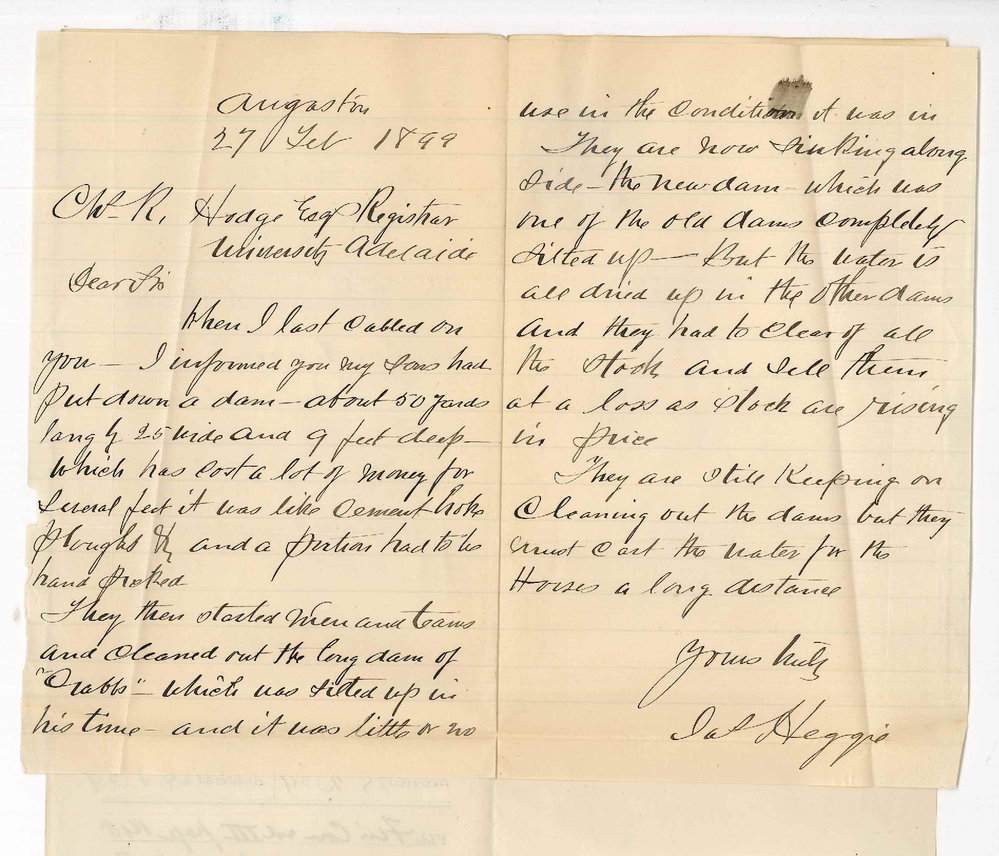 Angaston
27 Feb 1899
Chs. R. Hodge Esq Registrar
University Adelaide
Dear Sir
When I last called on
you — I informed you my sons had
put down a dam — about 50 yards
long by 25 wide and 9 feet deep —
which has cost a lot of money for
several feet it was like cement broke
ploughs &c and a portion had to be
hand picked
They then started men and teams
and cleaned out the long dam of
"Crabbs" — which was silted up in
his time — and it was little or no
use in the condition it was in
They are now sinking along
side — the new dam — which was
one of the old dams completely
silted up — But the water is
all dried up in the other dams
and they had to clear of all
the stock and sell them
at a loss as stock are rising
in price
They are still keeping on
cleaning out the dams but they
must cart the water for the
Horses a long distance
Yours truly
Jas Heggie